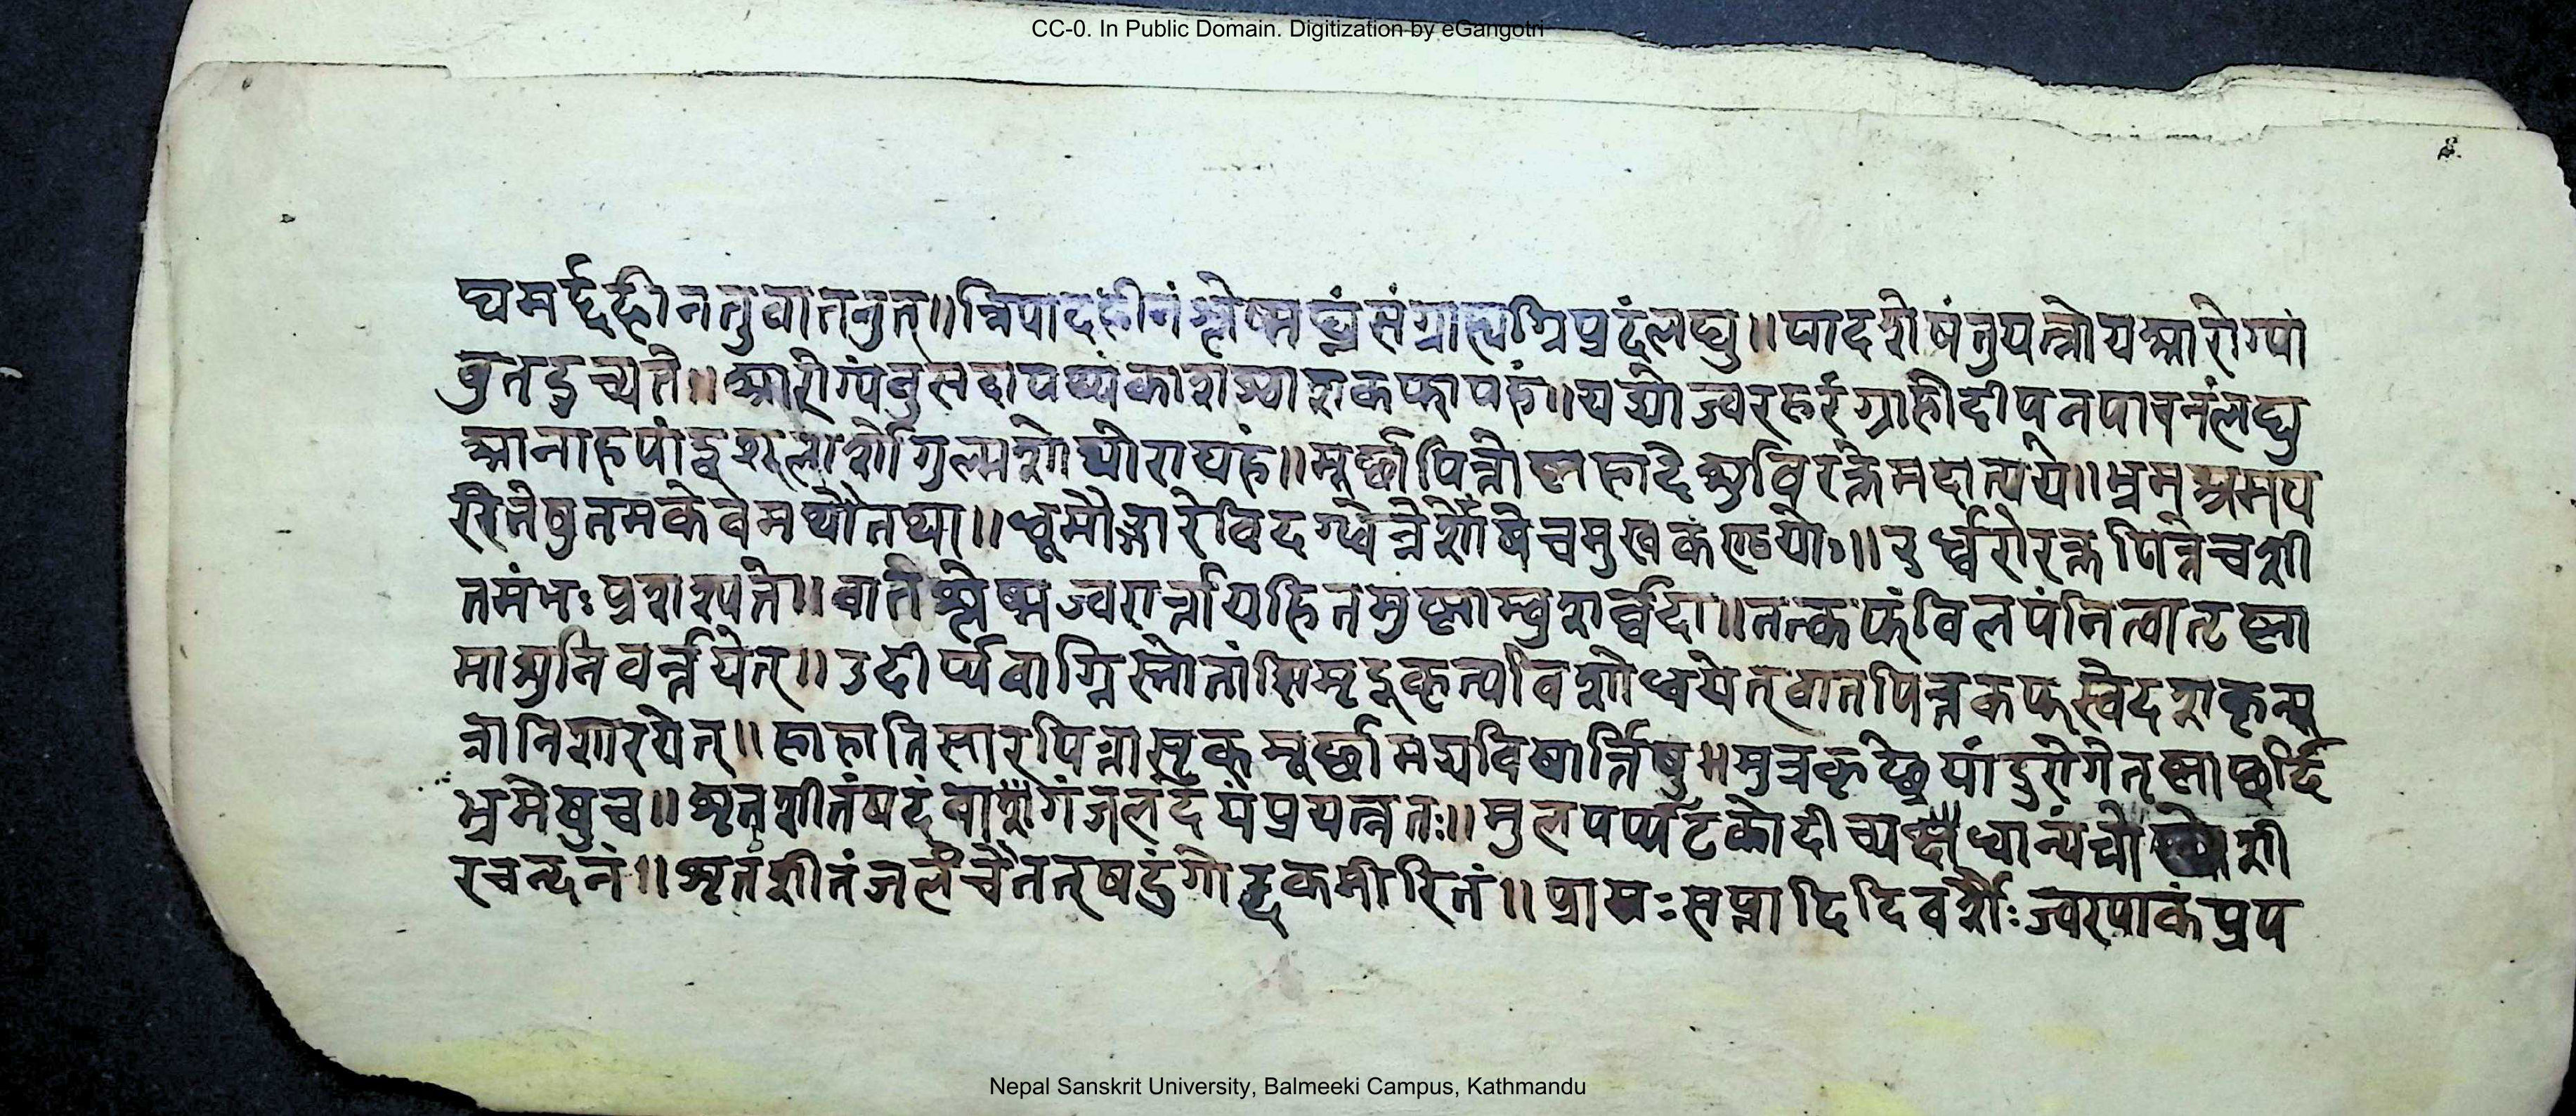 CC-0. In Public Domain. Digitization by eGangotri
घमर्द्धहीनतुवातनुत्॥त्रिपादहीनंश्लेष्मघ्नंसंग्राह्यग्निप्रदंलघु॥पादशेषंतुयत्तोयआरोग्यां
वुतदुच्यते॥आरोग्यंवुसदापथ्यंकाशश्वाशकफापहं॥यद्योज्वरहरंग्राहीदीपनपाचनंलघु
आनाहपांडुशूलार्शोगुल्मशोथोरापहं॥मूर्छापित्तोष्णहादेश्रुविरक्तेमदात्यये॥भ्रमश्रमप
रितेषुतमकेवमथौतथा॥धूमोद्गारेविदग्धेन्नेशोषेचमुखकण्ठयोः॥उर्ध्वरोरक्तपित्तेचशी
तमंभःप्रशश्यते॥वातश्लेष्मज्वरार्त्तायहितमुष्णाम्वुशर्व्वदा॥तत्कफंविलयंनित्वातृष्णा
माशुनिवर्त्तयेत्॥उदीर्य्यवाग्निस्त्रोतांसिमृदूकृत्यविशोध्ययेत्वातपित्तकफस्वेदशकृन्मू
त्रोनिशारयेत्॥हाहातिसारपित्तासृक्मूर्छामद्यविषार्त्तिषु॥मुत्रकृछ्रेपांडुरोगेतृष्णाछर्दि
भ्रमेषुच॥शृतशीतंषदंवाशौगंजलंदेयंप्रयत्नतः॥मुलपर्प्पटकोदीच्यधान्यं शी
रचन्दनं॥शृतंशीतंजलंचैतत्षदुंगोद्दकमीरितं॥प्रायःसप्तादिदिवशैःज्वरपाकंप्रप
Nepal Sanskrit University, Balmeeki Campus, Kathmandu